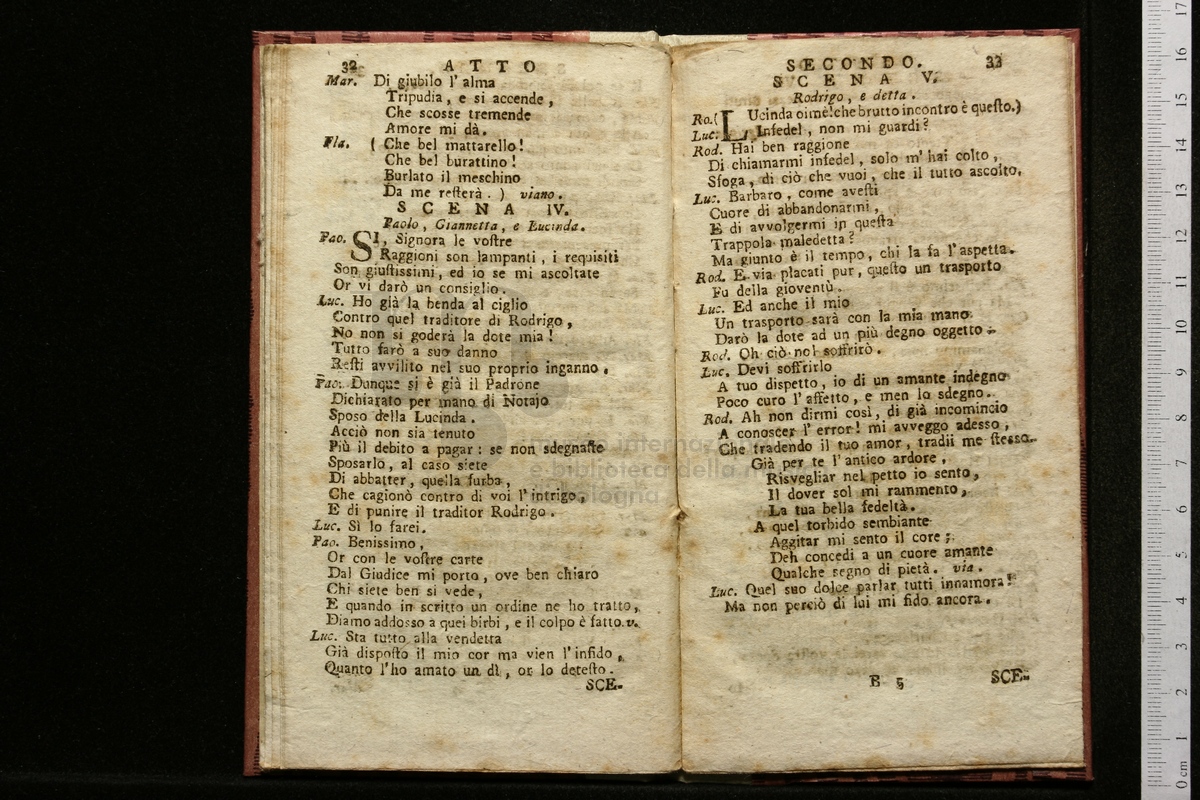 32 ATTO
Mar. Di giubilo l'alma
Tripudia, e si accende,
Che scosse tremende
Amore mi dà.
Fla. ( Che bel mattarello!
Che bel burattino!
Burlato il meschino
Da me resterà. ) viano.
SCENA IV.
Paolo, Giannetta, e Lucinda.
Pao. SI, Signora le vostre
Raggioni son lampanti, i requisiti
Son giustissimi, ed io se mi ascoltate
Or vi darò un consiglio.
Luc. Ho già la benda al ciglio
Contro quel traditore di Rodrigo,
No non si goderà la dote mia!
Tutto farò a suo danno
Resti avvilito nel suo proprio inganno.
Pao. Dunque si è già il Padrone
Dichiarato per mano di Notajo
Sposo della Lucinda.
Acciò non sia tenuto
Più il debito a pagar: se non sdegnaste
Sposarlo, al caso siete
Di abbatter, quella furba,
Che cagionò contro di voi l'intrigo,
E di punire il traditor Rodrigo.
Luc. Sì lo farei.
Pao. Benissimo,
Or con le vostre carte
Dal Giudice mi porto, ove ben chiaro
Chi siete ben si vede,
E quando in scritto un ordine ne ho tratto,
Diamo addosso a quei birbi, e il colpo è fatto. v.
Luc. Sta tutto alla vendetta
Già disposto il mio cor ma vien l'infido,
Quanto l'ho amato un dì, or lo detesto.
SCE-
SECONDO. 33
SCENA V.
Rodrigo, e detta.
Ro. ( LUcinda oimè! che brutto incontro è questo.)
Luc. Infedel, non mi guardi?
Rod. Hai ben raggione
Di chiamarmi infedel, solo m'hai colto,
Sfoga, di ciò che vuoi, che il tutto ascolto.
Luc. Barbaro, come avesti
Cuore di abbandonarmi,
E di avvolgermi in questa
Trappola maledetta?
Ma giunto è il tempo, chi la fa l'aspetta.
Rod. E via placati pur, questo un trasporto
Fu della gioventù.
Luc. Ed anche il mio
Un trasporto sarà con la mia mano
Darò la dote ad un più degno oggetto.
Rod. Oh ciò nol soffrirò.
Luc. Devi soffrirlo
A tuo dispetto, io di un amante indegno
Poco curo l'affetto, e men lo sdegno.
Rod. Ah non dirmi così, di già incomincio
A conoscer l'error! mi avveggo adesso,
Che tradendo il tuo amor, tradii me stesso.
Già per te l'antico ardore,
Risvegliar nel petto io sento,
Il dover sol mi rammento,
La tua bella fedeltà.
A quel torbido sembiante
Aggitar mi sento il core;
Deh concedi a un cuore amante
Qualche segno di pietà. via.
Luc. Quel suo dolce parlar tutti innamora!
Ma non perciò di lui mi fido ancora.
B 5 SCE-